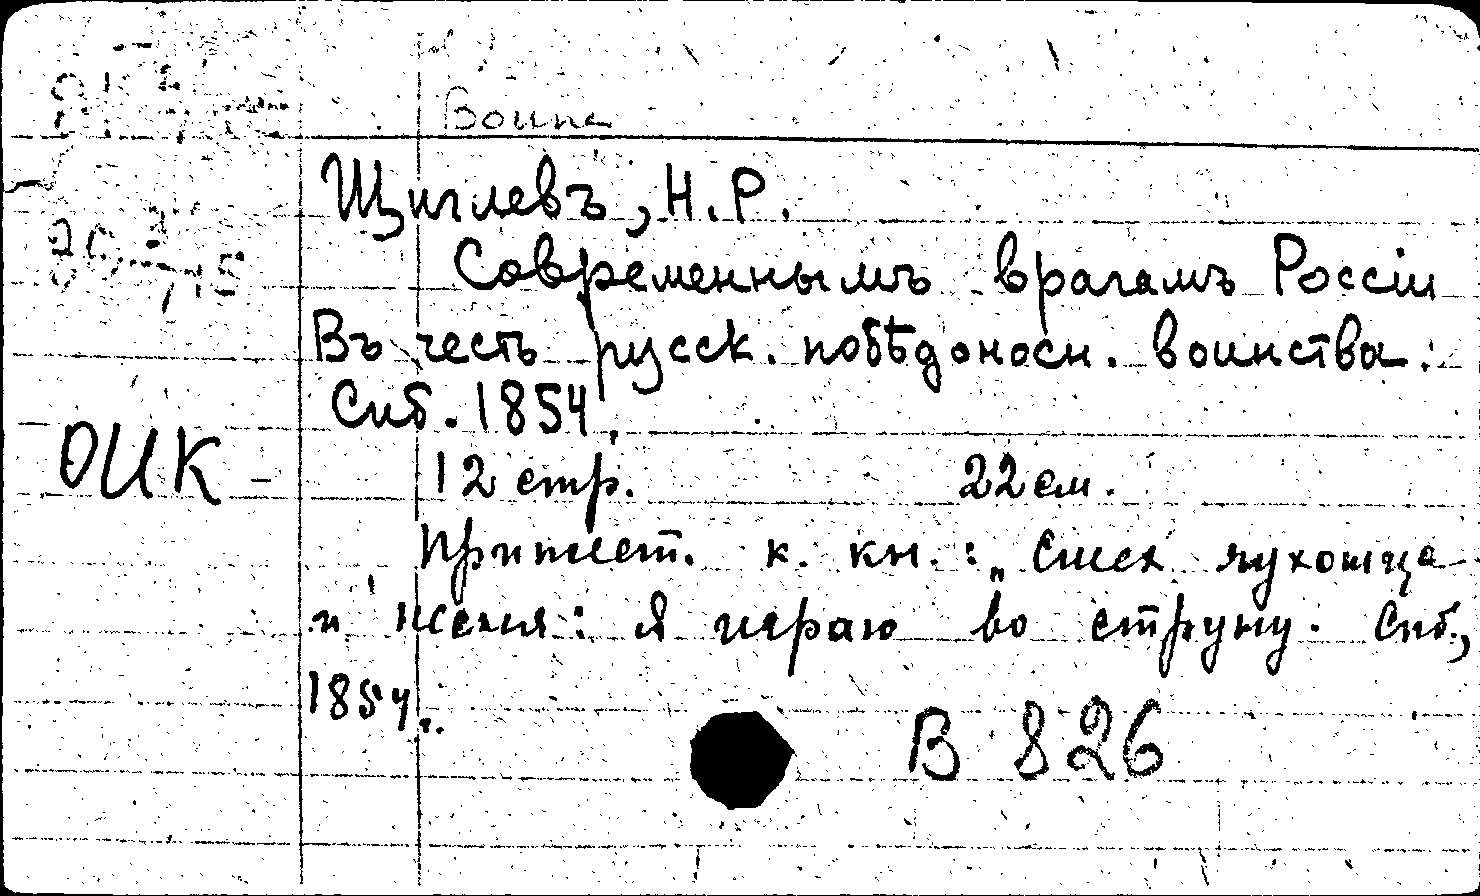 Воина
Щиглевъ, Н. Р.
Современнымъ врагамъ Россіи
Въ честь русск. побѣдоносн. воинства.
Спб. 1854.
ОИК
12 стр. 22 см.
Приплет. к. кн.: „
и : я играю во струну. Спб.,
1854.
В 826